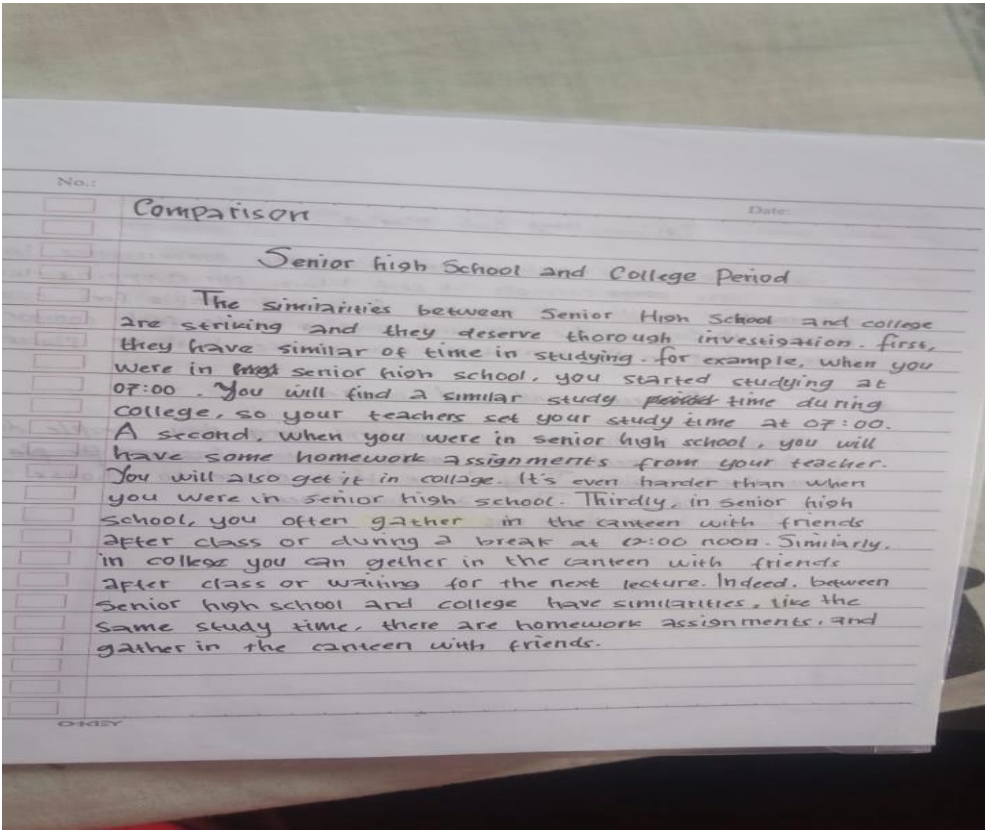 No.:
Date:
Comparison
Senior high School and College Period
The similarities between Senior High School and college
are striking and they deserve thorough investigation. first,
they have similar of time in studying. for example, when you
were in senior high school, you started studying at
07:00. You will find a similar study time during
college, so your teachers set your study time at 07:00.
A second, when you were in senior high school, you will
have some homework assignments from your teacher.
You will also get it in collage. It's even harder than when
you were in senior high school. Thirdly, in senior high
school, you often gather in the canteen with friends
after class or during a break at 12:00 noon. Similarly,
in college you can gether in the canteen with friends
after class or waiting for the next lecture. Indeed, between
Senior high school and college have similarities, like the
same study time, there are homework assignments, and
gather in the canteen with friends.